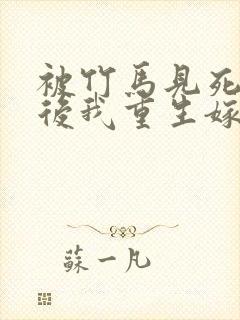 被竹馬見死
後我重生嫁
蘇一凡